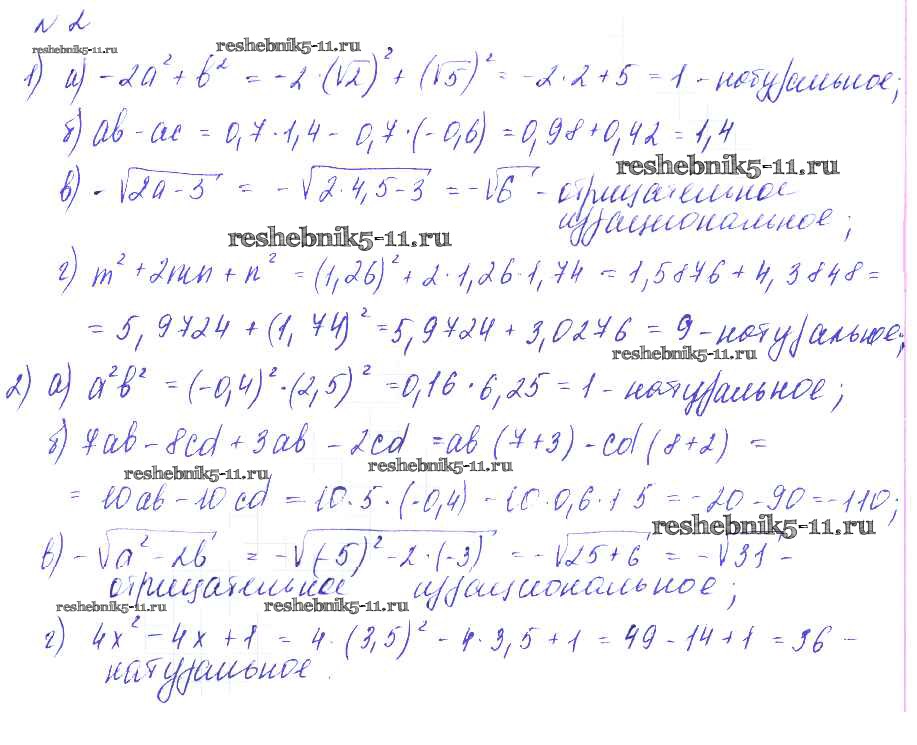 № 2
reshebnik5-11.ru reshebnik5-11.ru
1) а) -2a² + b² = -2·(√2)² + (√5)² = -2·2+5 = 1 - натуральное;
б) ab - ac = 0,7·1,4 - 0,7·(-0,6) = 0,98+0,42 = 1,4
reshebnik5-11.ru
в) -√(2a-3) = -√(2·4,5-3) = -√6 - отрицательное
иррациональное;
reshebnik5-11.ru
г) m² + 2mn + n² = (1,26)² + 2·1,26·1,74 = 1,5876 + 4,3848 =
= 5,9724 + (1,74)² = 5,9724 + 3,0276 = 9 - натуральное;
reshebnik5-11.ru
2) а) a²b² = (-0,4)²·(2,5)² = 0,16·6,25 = 1 - натуральное;
б) 7ab - 8cd + 3ab - 2cd = ab(7+3) - cd(8+2) =
reshebnik5-11.ru reshebnik5-11.ru
= 10ab - 10cd = 10·5·(-0,4) - 10·0,6·15 = -20-90 = -110;
reshebnik5-11.ru
в) -√(a²-2b) = -√((-5)²-2·(-3)) = -√(25+6) = -√31 -
отрицательное иррациональное;
reshebnik5-11.ru reshebnik5-11.ru
г) 4x² - 4x + 1 = 4·(3,5)² - 4·3,5 + 1 = 49 - 14 + 1 = 36 -
натуральное.